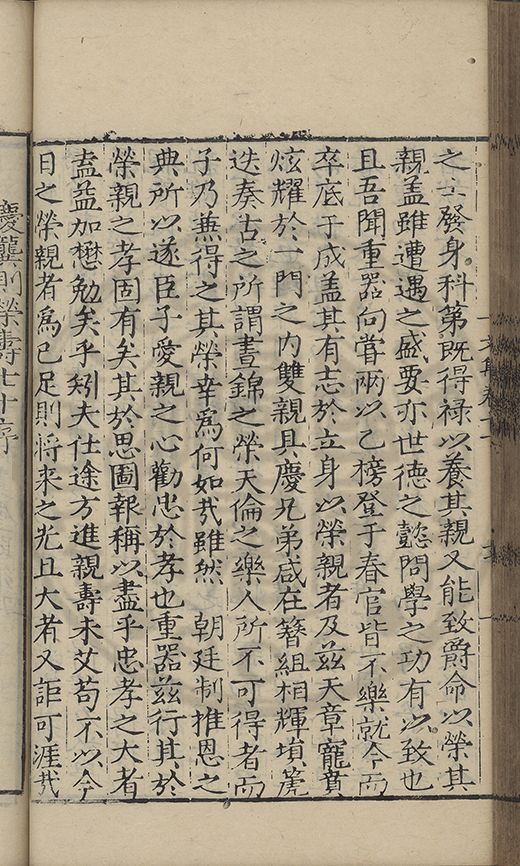 之士發身科第既得禄以養其親又能致爵命以榮其
親盖雖遭遇之盛要亦世德之懿問學之功有以致也
且吾聞重器向嘗兩以乙榜登于春官皆不樂就今而
卒底于成盖其有志於立身以榮親者及兹天章寵賁
炫耀於一門之内雙親具慶兄弟咸在簪組相輝塤箎
迭奏古之所謂晝錦之榮天倫之樂人所不可得者而
子乃兼得之其榮幸為何如㢤雖然　朝廷制推恩之
典所以遂臣子愛親之心勸忠於孝也重器兹行其於
榮親之孝固有矣其於思圖報稱以盡乎忠孝之大者
盍益加懋勉矣乎矧夫仕途方進親壽未艾苟不以今
日之榮親者為已足則將来之光且大者又詎可涯㢤
慶龔則榮壽七十序